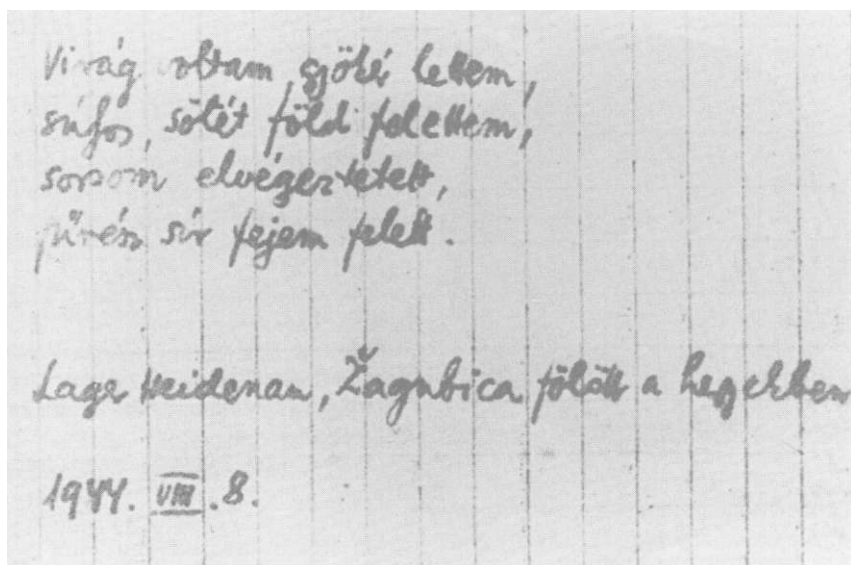 Virág voltam, gyökér lettem,
súlyos, sötét föld felettem,
sorsom elvégeztetett,
fűrész sír fejem felett.
Lager Heidenau, Žagubica fölött a hegyekben
1944. VIII. 8.